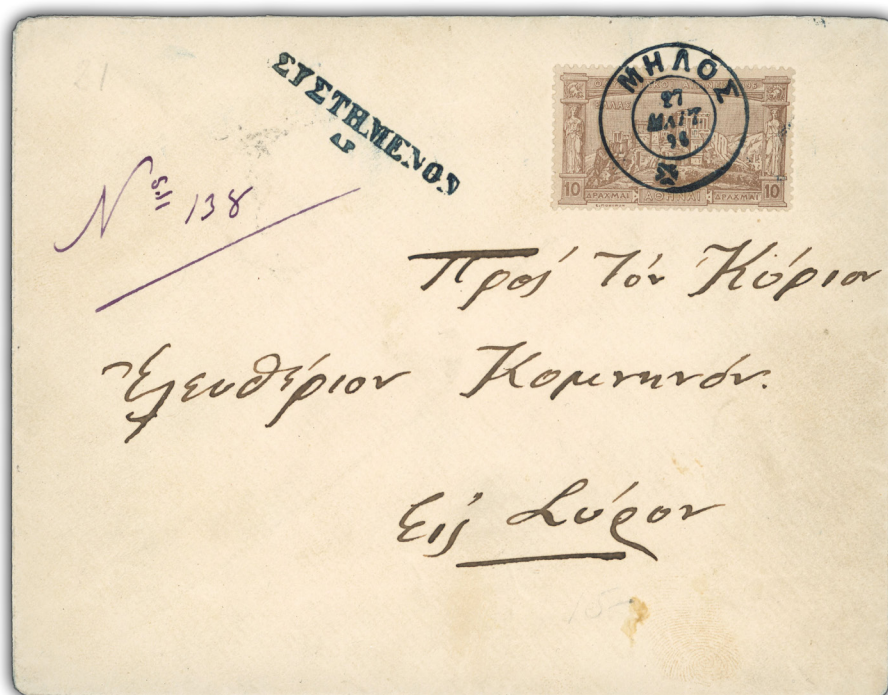 21
ΣΥΣΤΗΜΕΝΟΣ
ΜΗΛΟΣ
27
ΜΑΡΤ
10 ΔΡΑΧΜΑΙ ΑΘΗΝΑΙ ΔΡΑΧΜΑΙ 10
Nº 138
Πρός τόν Κύριον
Ἐλευθέριον Κομνηνόν.
Εἰς Σύρον